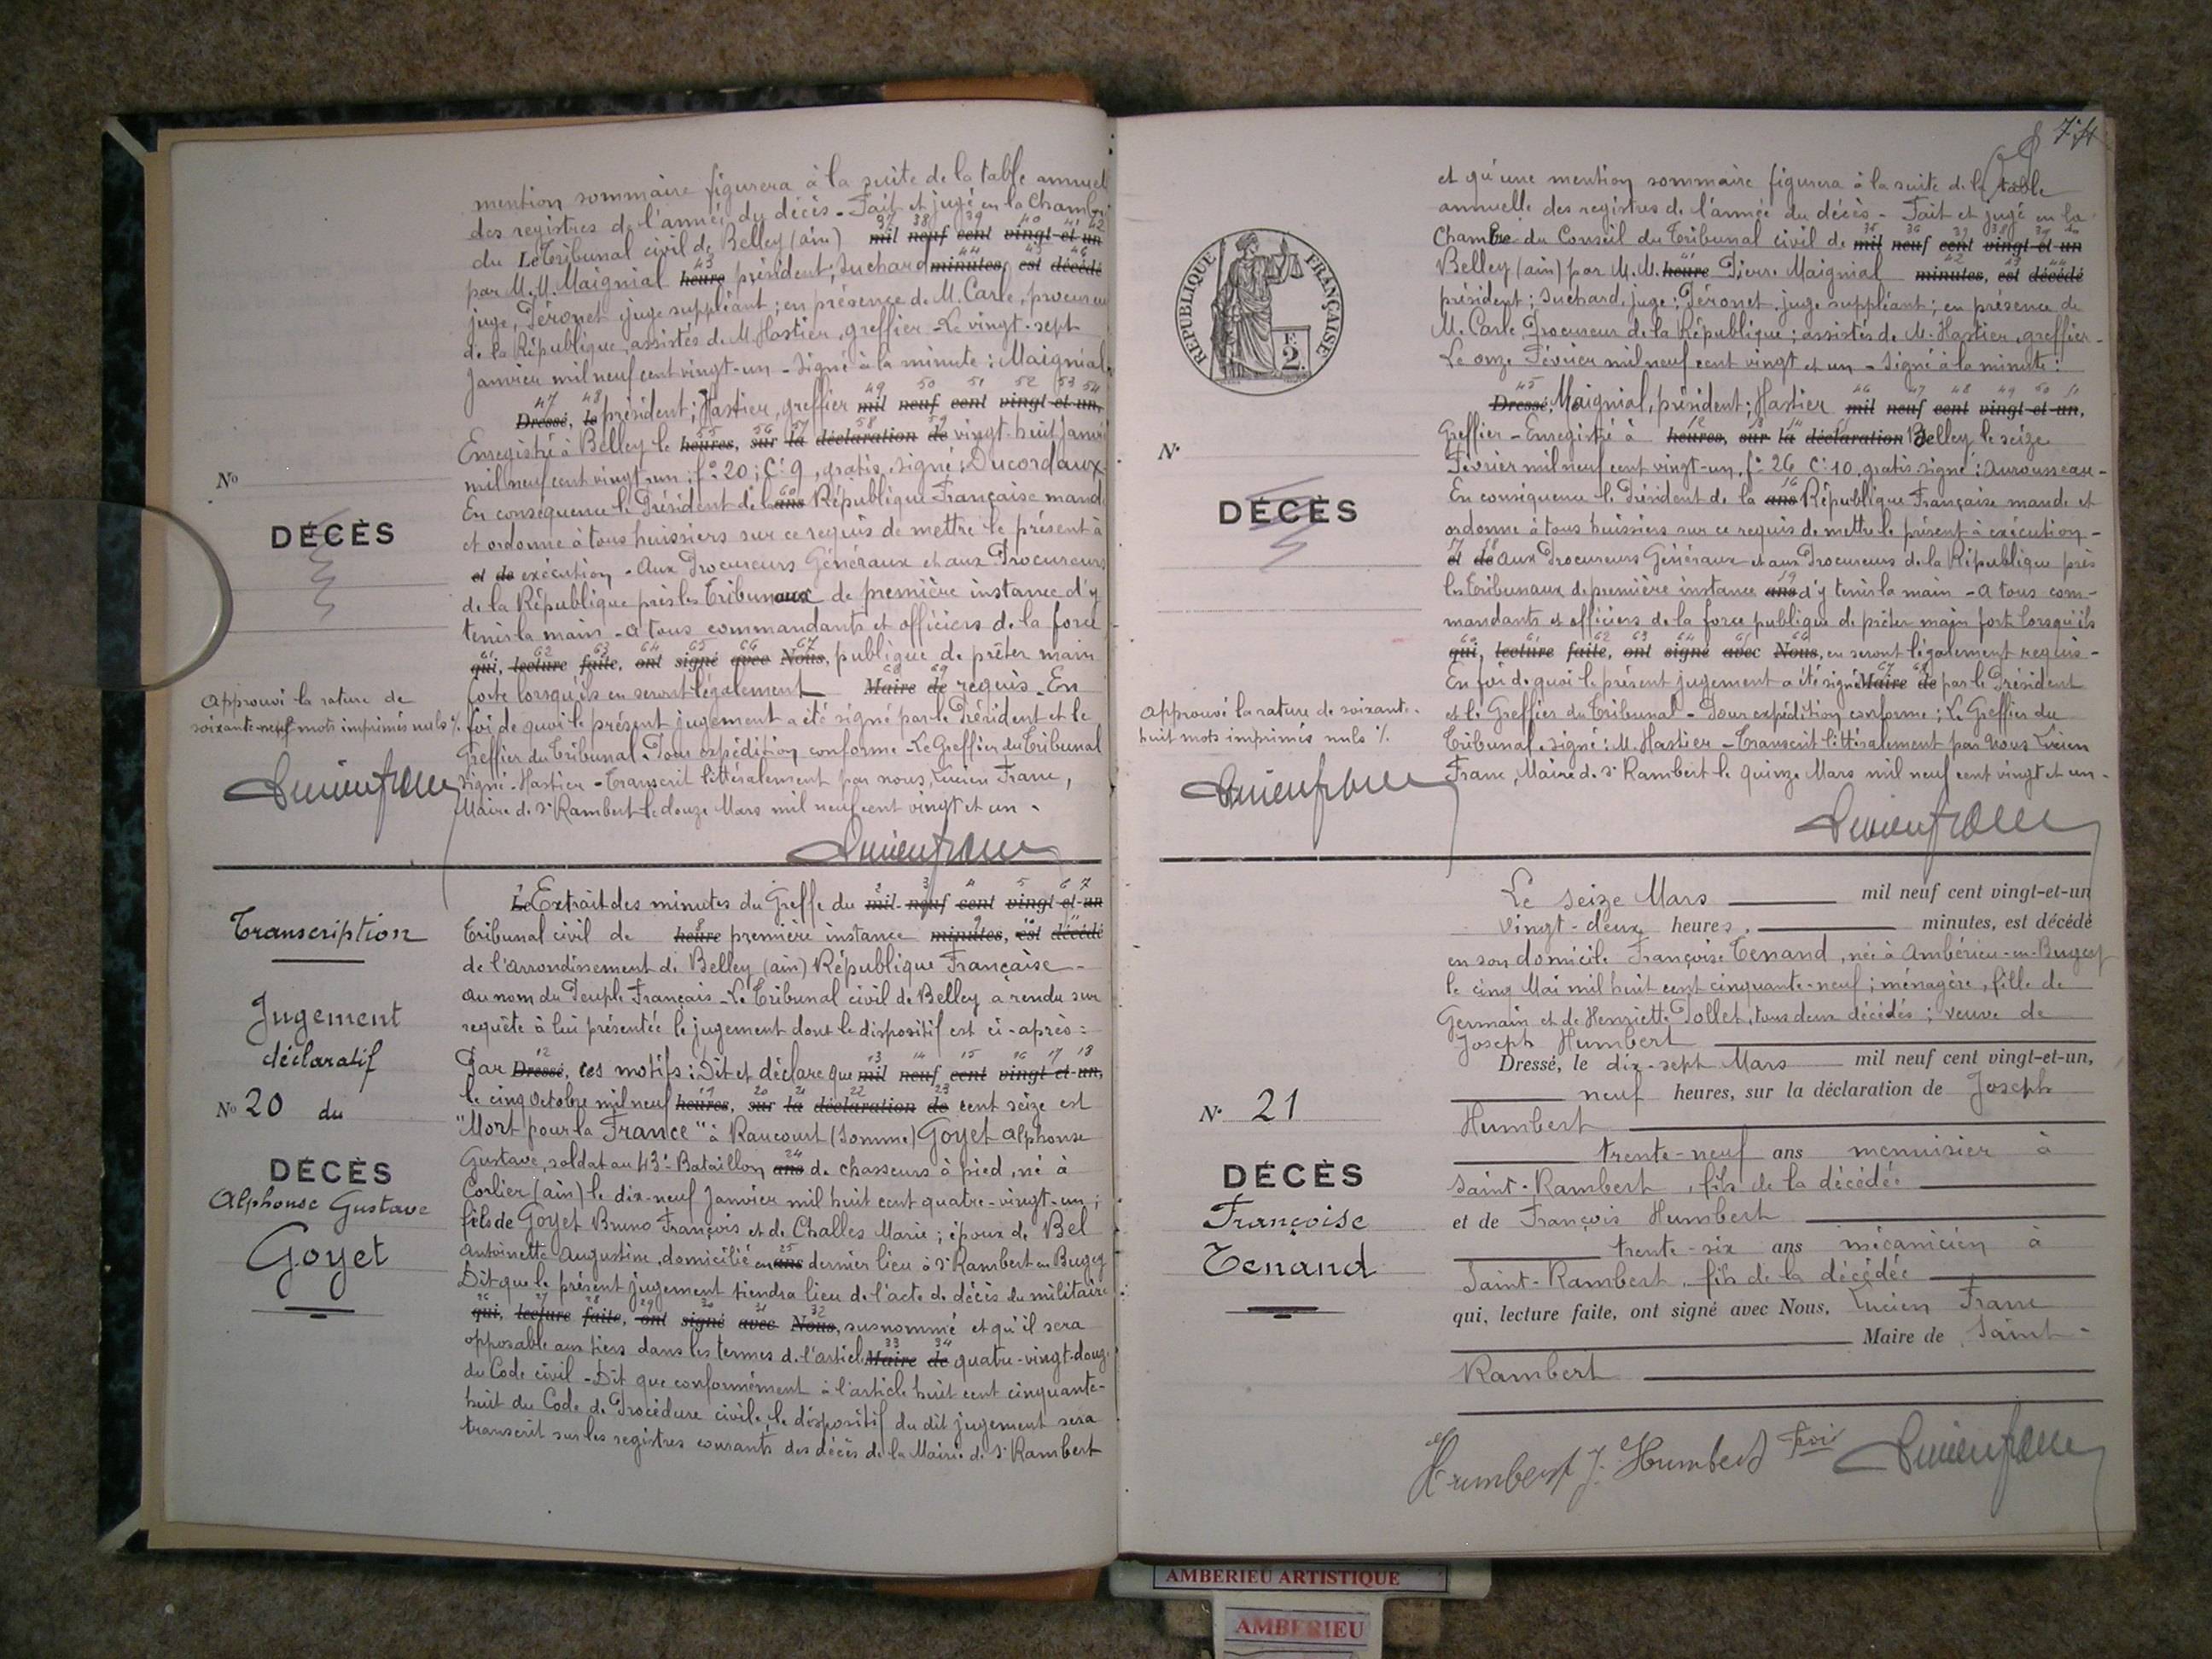 mention sommaire figurera à la suite de la table annuel
des registres de l'année du décès - Fait et jugé en la Chambre
37 38 39 40 41 42
du Le Tribunal civil de Belley (ain) mil neuf cent vingt-et-un
43 44 45 46
par M. M. Maignial heure président; Suchard minutes, est décédé
juge, Péronet juge suppléant; en présence de M. Carle, procureu
de la République, assistés de M. Hastier, greffier - Le vingt-sept
Janvier mil neuf cent vingt-un - signé à la minute: Maignial,
47 48 49 50 51 52 53 54
Dressé, le président; Hastier, greffier mil neuf cent vingt-et-un,
55 56 57 58 59
Enregistré à Belley le heures, sur la déclaration de vingt-huit Janvi
mil neuf cent vingt-un, f° 20; C: 9, gratis, signé: Ducordaux.
60
En conséquence le Président de la ans République Française mande
et ordonne à tous huissiers sur ce requis de mettre le présent à
et de exécution - Aux Procureurs Généraux et aux Procureurs
de la République près les Tribunaux de première instance d'y
tenir la main - a tous commandants et officiers de la force
61 62 63 64 65 66 67
qui, lecture faite, ont signé avec Nous, publique de prêter main
68 69
forte lorsqu'ils en seront légalement Maire de requis. En
foi de quoi le présent jugement a été signé par le Président et le
Greffier du Tribunal. Pour expédition conforme - Le Greffier du Tribunal
signé - Hastier - Transcrit littéralement par nous, Lucien Franc,
Maire de St Rambert le douze Mars mil neuf cent vingt et un -
Lucien franc
No
DÉCÈS
Approuvé la rature de
soixante-neuf mots imprimés nuls ./.
Lucien franc
Transcription
Jugement
déclaratif
No 20 du
DÉCÈS
Alphonse Gustave
Goyet
1 2 3 4 5 6 7
Le Extrait des minutes du Greffe du mil neuf cent vingt-et-un
8 9 10 11
Tribunal civil de heure première instance minutes, est décédé
de l'arrondissement de Belley (ain) République Française -
au nom du Peuple Français - Le Tribunal civil de Belley a rendu sur
requête à lui présentée le jugement dont le dispositif est ci-après:
12 13 14 15 16 17 18
Par Dressé, ces motifs: Dit et déclare que mil neuf cent vingt-et-un,
19 20 21 22 23
le cinq Octobre mil neuf heures, sur la déclaration de cent seize est
"Mort pour la France" à Rancourt (Somme) Goyet alphonse
24
Gustave, soldat au 43e Bataillon ans de chasseurs à pied, né à
Corlier (ain) le dix-neuf Janvier mil huit cent quatre-vingt-un;
fils de Goyet Bruno François et de Challes Marie; époux de Bel
25
Antoinette Augustine, domicilié en ans dernier lieu à St Rambert en Bugey
Dit que le présent jugement tiendra lieu de l'acte de décès du militaire
26 27 28 29 30 31 32
qui, lecture faite, ont signé avec Nous, susnommé et qu'il sera
33 34
opposable aux tiers dans les termes de l'article Maire de quatre-vingt-douze
du Code civil - Dit que conformément à l'article huit cent cinquante-
huit du Code de Procédure civile, le dispositif du dit jugement sera
transcrit sur les registres courants des décès de la Mairie de St Rambert
74
et qu'une mention sommaire figurera à la suite de la table
annuelle des registres de l'année du décès - Fait et jugé en la
35 36 37 38 39 40
Chambre du Conseil du Tribunal civil de mil neuf cent vingt-et-un
41 42 43 44
Belley (ain) par M. M. heure Pierre Maignial minutes, est décédé
président; Suchard, juge; Péronet, juge suppléant; en présence de
M. Carle Procureur de la République; assistés de M. Hastier, greffier -
Le onze Février mil neuf cent vingt et un - signé à la minute:
45 46 47 48 49 50 51
Dressé, Maignial, président; Hastier mil neuf cent vingt-et-un,
12 13 14 15
Greffier - Enregistré à heures, sur la déclaration Belley le seize
Février mil neuf cent vingt-un, f° 26 C: 10, gratis signé: aurousseau -
16
En conséquence le Président de la ans République Française mande et
ordonne à tous huissiers sur ce requis de mettre le présent à exécution -
57 58
et de aux Procureurs Généraux et aux Procureurs de la République près
59
les Tribunaux de première instance ans d'y tenir la main - a tous com-
mandants et officiers de la force publique de prêter main forte lorsqu'ils
60 61 62 63 64 65 66
qui, lecture faite, ont signé avec Nous, en seront légalement requis -
67 68
En foi de quoi le présent jugement a été signé Maire de par le Président
et le Greffier du Tribunal - Pour expédition conforme; Le Greffier du
Tribunal signé: M. Hastier - Transcrit littéralement par Nous Lucien
Franc, Maire de St Rambert le quinze Mars mil neuf cent vingt et un -
Lucien franc
RÉPUBLIQUE FRANÇAISE
F.
2.
No
DÉCÈS
Approuvé la rature de soixante-
huit mots imprimés nuls ./.
Lucien franc
No 21
DÉCÈS
Françoise
Tenand
Le seize Mars mil neuf cent vingt-et-un
vingt-deux heures, minutes, est décédé
en son domicile Françoise Tenand, née à Ambérieu-en-Bugey
le cinq Mai mil huit cent cinquante-neuf; ménagère, fille de
Germain et de Henriette Pollet, tous deux décédés; veuve de
Joseph Humbert
Dressé, le dix-sept Mars mil neuf cent vingt-et-un,
neuf heures, sur la déclaration de Joseph
Humbert
trente-neuf ans menuisier à
Saint-Rambert, fils de la décédée
et de François Humbert
trente-six ans mécanicien à
Saint-Rambert, fils de la décédée
qui, lecture faite, ont signé avec Nous, Lucien Franc
Maire de Saint-
Rambert
Humbert J. Humbert Fois Lucien franc
AMBERIEU ARTISTIQUE
AMBERIEU